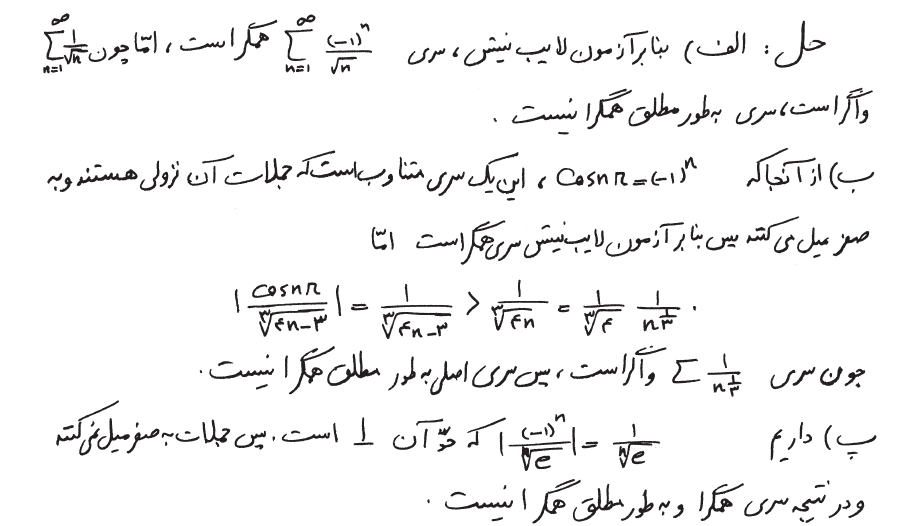 حل : الف) بنابر آزمون لایب نیتس ، سری $\sum_{n=1}^{\infty} \frac{(-1)^n}{\sqrt{n}}$ همگراست ، امّا چون $\sum_{n=1}^{\infty} \frac{1}{\sqrt{n}}$
واگراست ، سری به‌طور مطلق همگرا نیست .
ب) از آنجا که $\cos n\pi = (-1)^n$ ، این یک سری متناوب است که جملات آن نزولی هستند و به
صفر میل می‌کنند پس بنابر آزمون لایب نیتس سری همگراست امّا
$|\frac{\cos n\pi}{\sqrt[۳]{۴n-۳}}| = \frac{1}{\sqrt[۳]{۴n-۳}} > \frac{1}{\sqrt[۳]{۴n}} = \frac{1}{\sqrt[۳]{۴}} \frac{1}{n^{\frac{1}{۳}}}$ .
چون سری $\sum \frac{1}{n^{\frac{1}{۳}}}$ واگراست ، پس سری اصلی به طور مطلق همگرا نیست .
پ) داریم $|\frac{(-1)^n}{\sqrt[n]{e}}| = \frac{1}{\sqrt[n]{e}}$ که حدّ آن 1 است . پس جملات به صفر میل نمی‌کنند
و در نتیجه سری همگرا و به طور مطلق همگرا نیست .